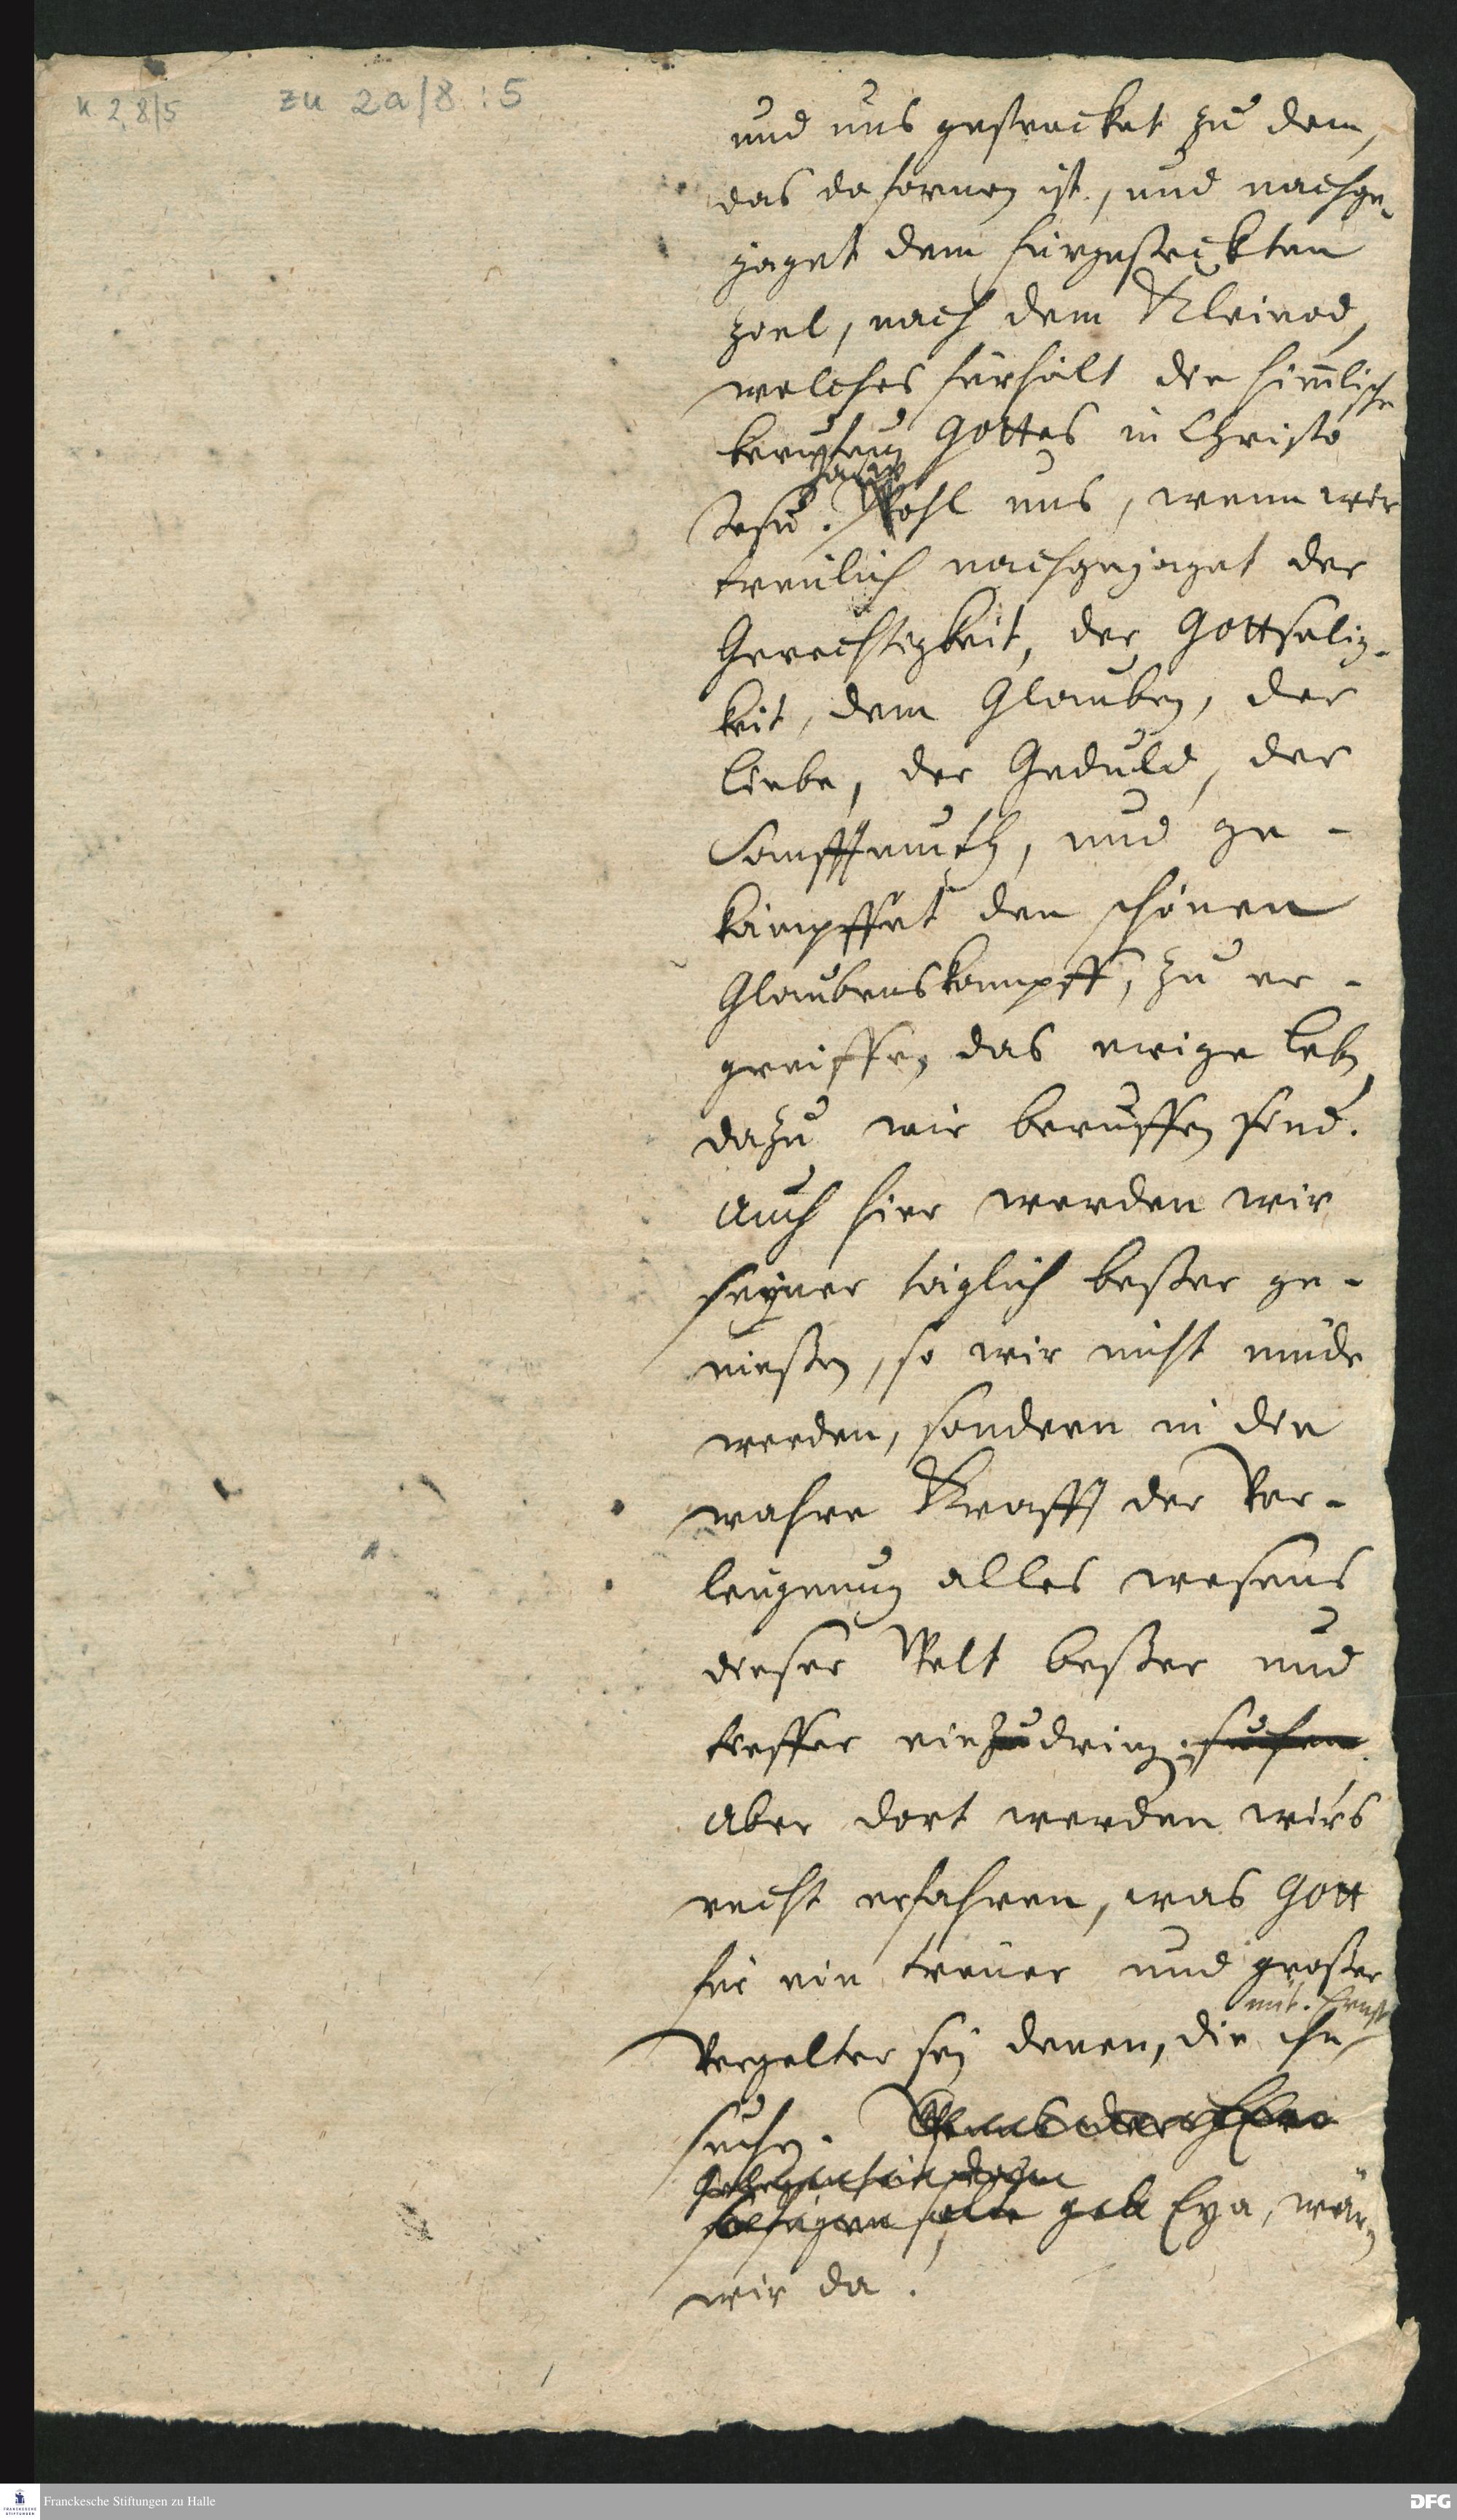 k 2, 8/5
zu 2a/8 : 5
und uns gestrecket zu dem,
das da fornen ist, und nachge-
jaget dem fürgesteckten
Ziel, nach dem Kleinod,
welches fürhält die him̅lische
beruffung Gottes in Christo
Jesu. Wohl uns, wenn wir
treulich nachgejaget der
Gerechtigkeit, der Gottselig-
keit, dem Glauben, der
Liebe, der Geduld, der
Sanfftmuth, und ge-
kämpffet den schönen
Glaubenskampff, zu er-
greiffen das ewige Leben,
dazu wir beruffen sind.
Auch hier werden wir
seyner täglich beßer ge-
nießen, so wir nicht müde
werden, sondern in die
wahre Krafft der Ver-
leugnung alles wesens
dieser Welt beßer und
tieffer einzudringen suchen.
Aber dort werden wirs
recht erfahren, was Gott
für ein treuer und großer
mit Ernst
Vergelter sey denen, die ihn
suchen.
Eya, wären
wir da.
Franckesche Stiftungen zu Halle
FRANCKESCHE STIFTUNGEN
DFG